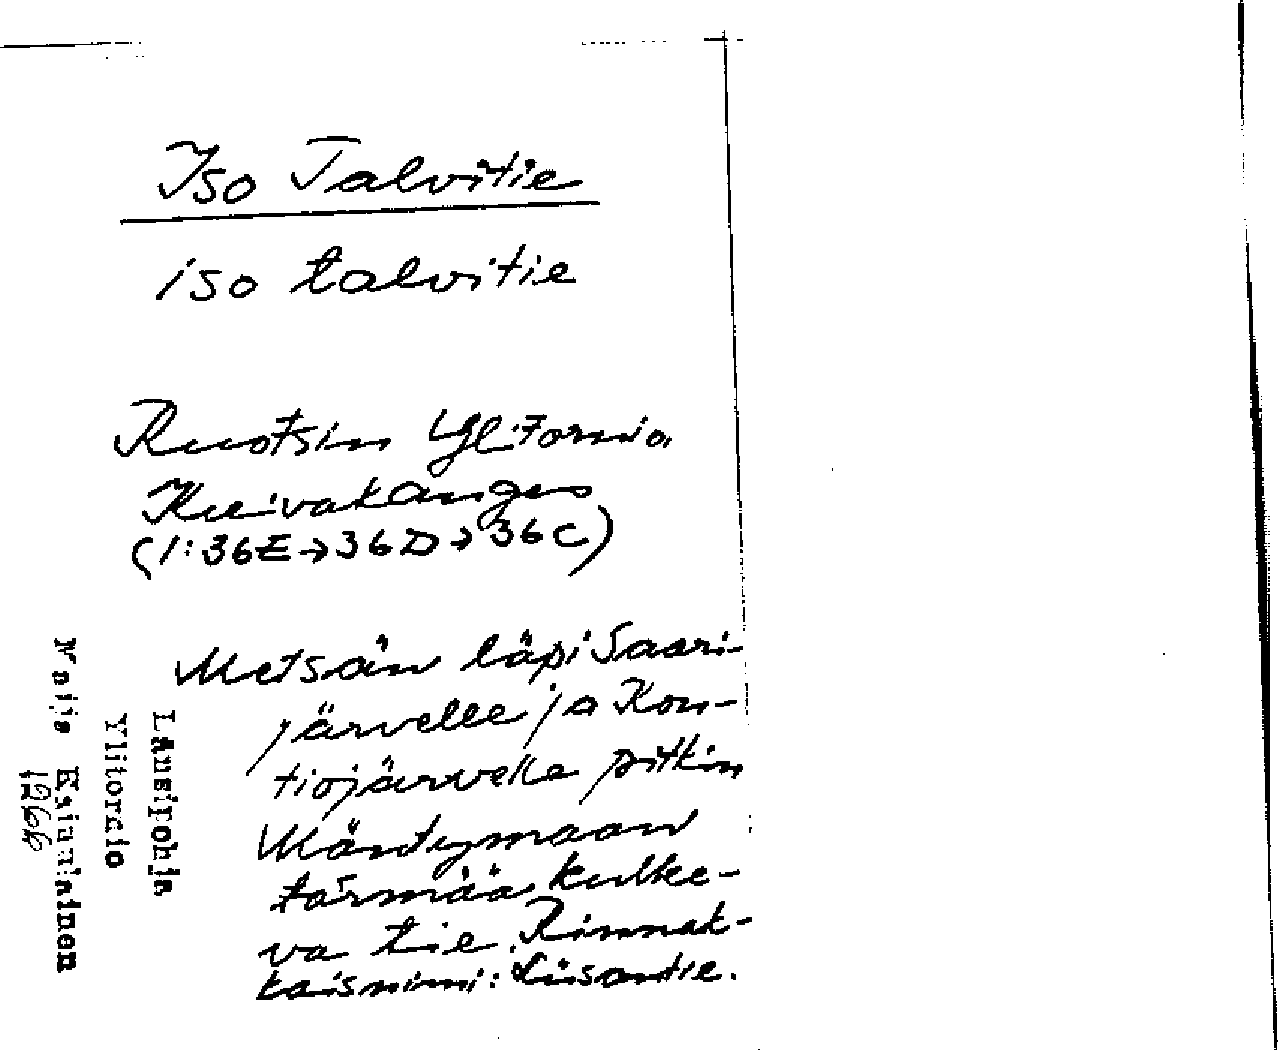 Iso Talvitie
iso talvitie
Ruotsin Ylitornio
Kuivakangas
(1:36E→36D→36C)
Metsän läpi Saari-
järvelle ja Kon-
tiojärvelle pitkin
Mäntymaan
törmää kulke-
va tie. Rinnak-
kaisnimi: Liisantie.
Länsipohja
Ylitornio
Maija Kainulainen
1966